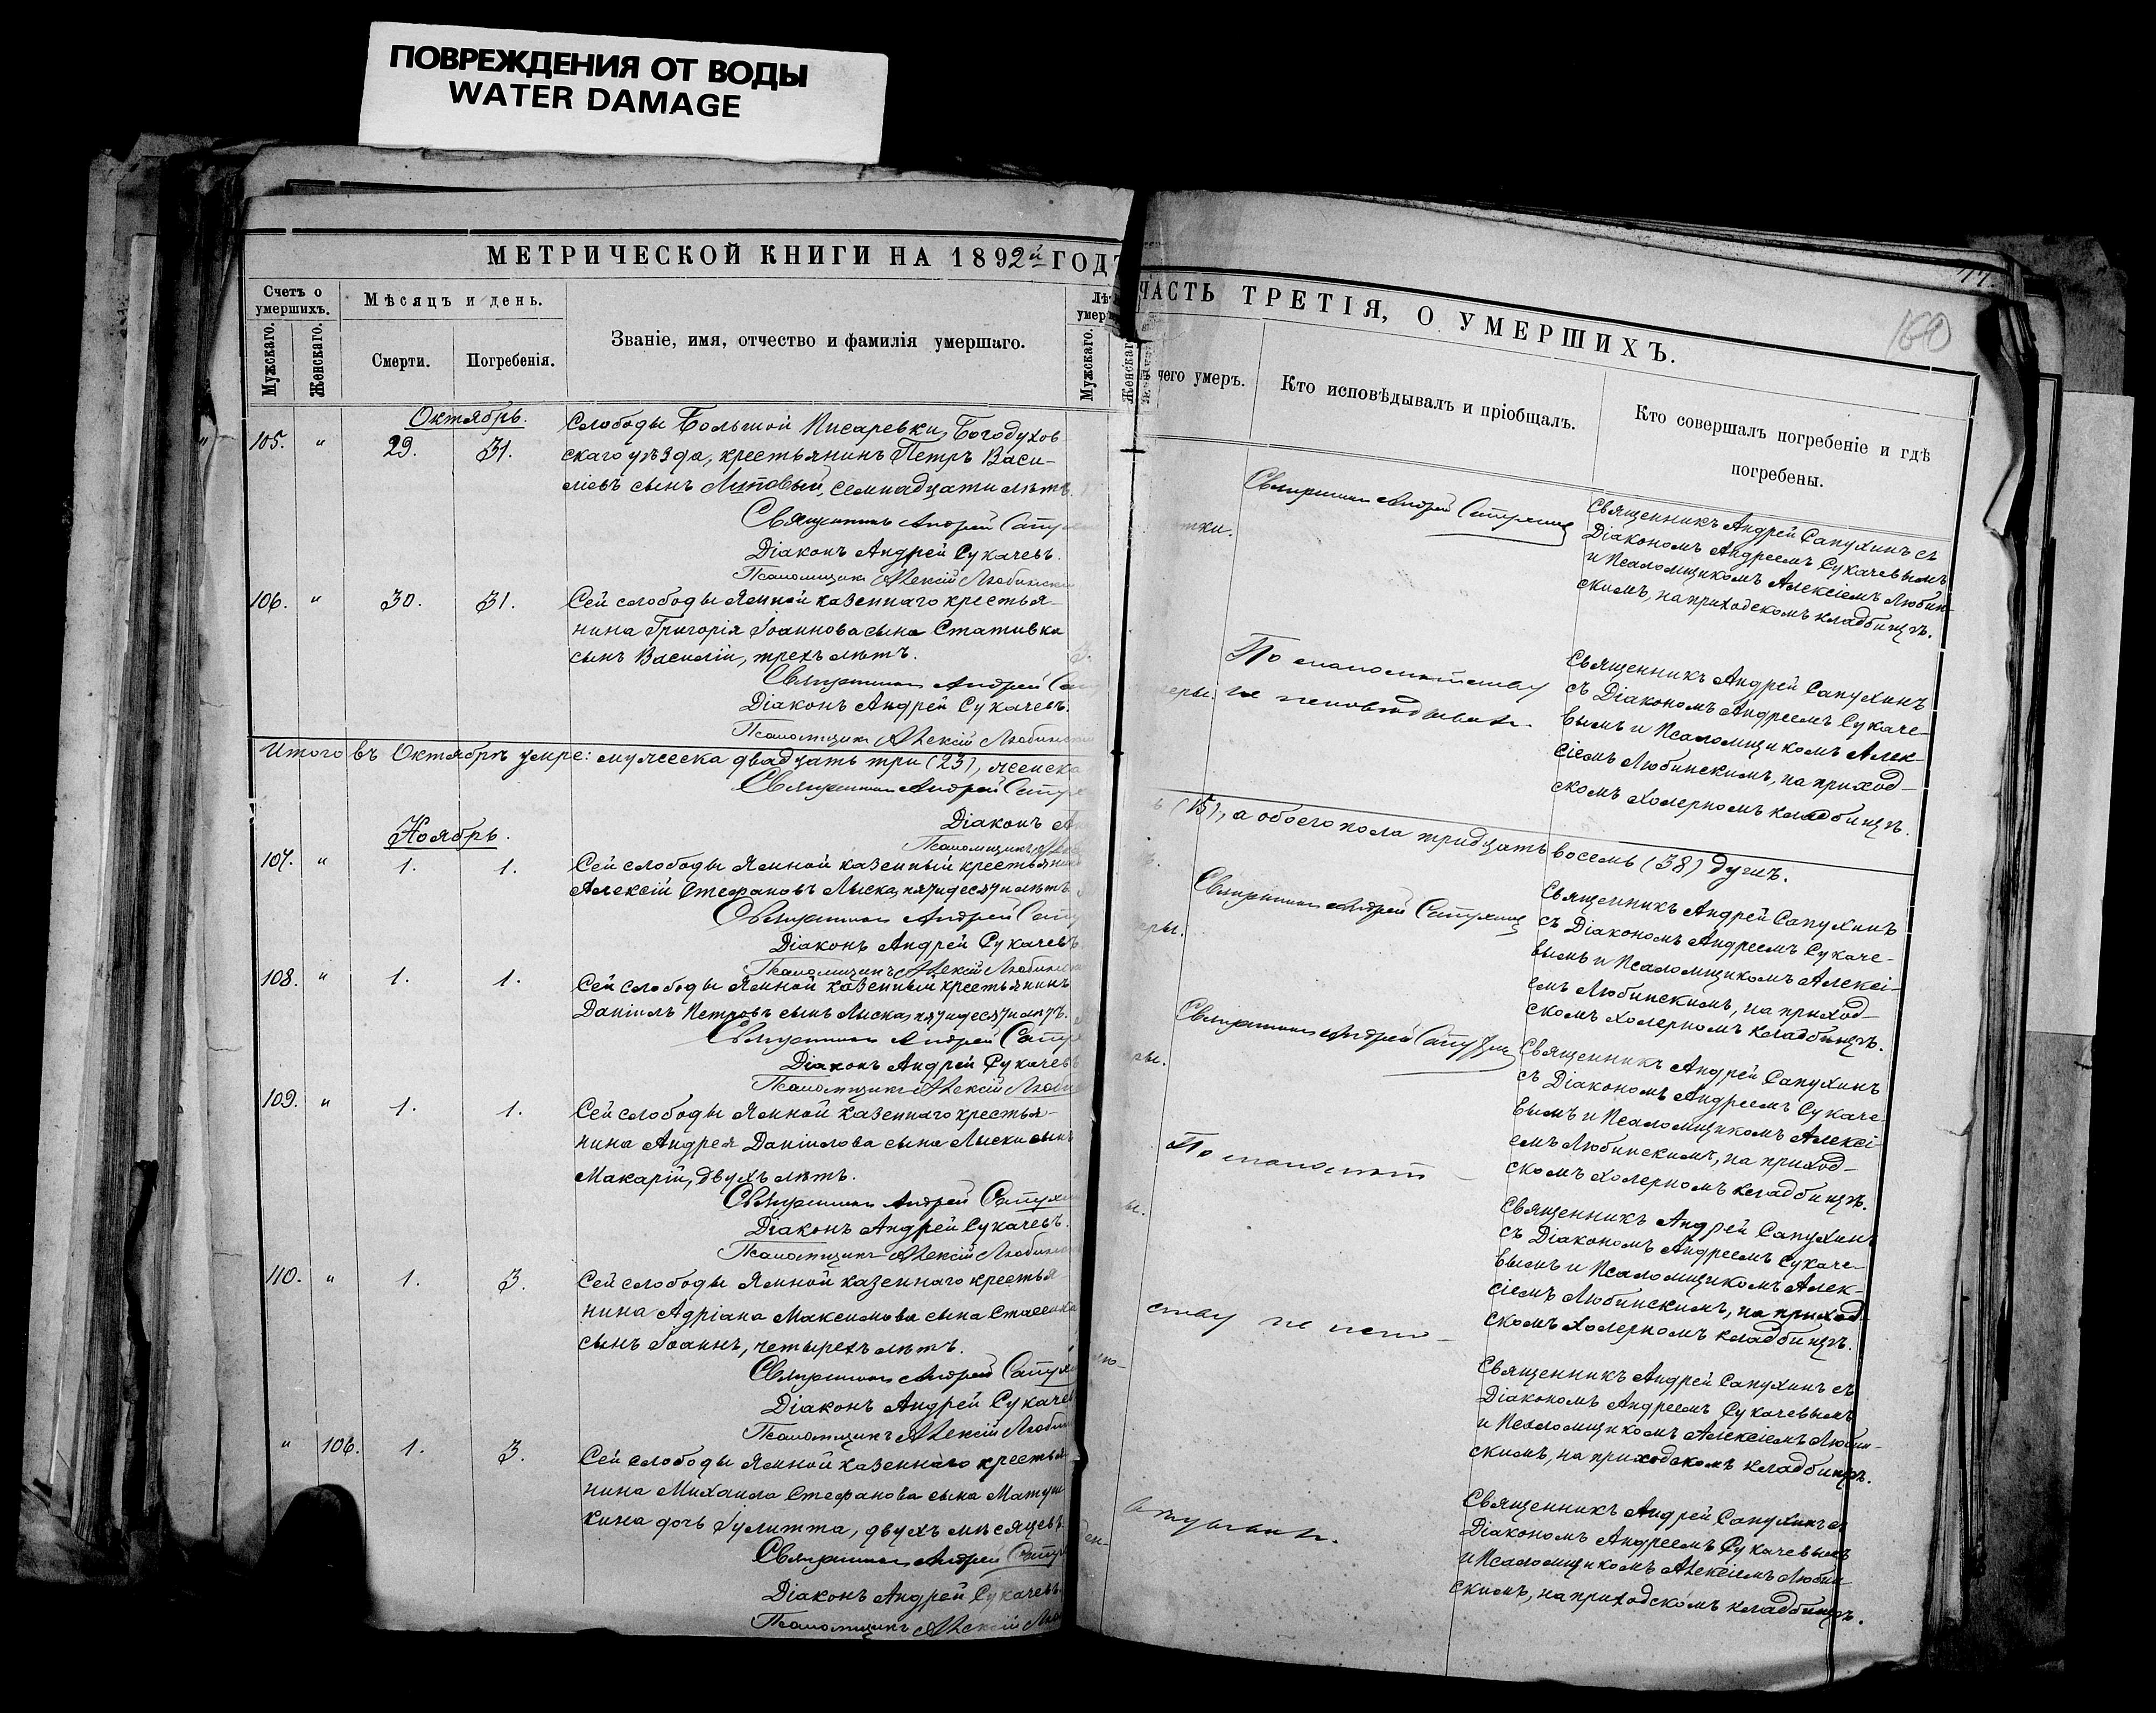 ПОВРЕЖДЕНИЯ ОТ ВОДЫ
WATER DAMAGE
МЕТРИЧЕСКОЙ КНИГИ НА 1892й ГОДЪ
Счетъ о умершихъ.
Мужскаго.
Женскаго.
Мѣсяцъ и день.
Смерти.
Погребенія.
Званіе, имя, отчество и фамилія умершаго.
Мужскаго.
Октябрь.
105. " 29. 31.
Слободы Большой Писаревки, Богодухов
скаго уѣзда, крестьянинъ Петръ Васи-
ліевъ сынъ Липовый, семнадцати лѣтъ.
Священникъ Андрей
Діаконъ Андрей Сукачевъ.
Псаломщикъ Алексій Любинскій
106. " 30. 31.
Сей слободы Ямной казеннаго крестья-
нина Григорія Іоаннова сына Стативка
сынъ Василій, трехъ лѣтъ.
3.
Священникъ Андрей
Діаконъ Андрей Сукачевъ.
Псаломщикъ Алексій Любинскій
Итого въ Октябрѣ умре: мужеска двадцать три (23), женска
Священникъ Андрей
Діаконъ
Псаломщикъ
Ноябрь.
107. " 1. 1.
Сей слободы Ямной казенный крестьянинъ
Алексій Стефановъ Лыска, пятидесяти лѣтъ
Священникъ Андрей
Діаконъ Андрей Сукачевъ
Псаломщикъ Алексій
108. " 1. 1.
Сей слободы Ямной казенный крестьянинъ
Даніилъ Петровъ сынъ Лыска, пятидесяти лѣтъ.
Священникъ Андрей
Діаконъ Андрей Сукачевъ
Псаломщикъ Алексій
109. " 1. 1.
Сей слободы Ямной казеннаго крестья-
нина Андрея Даніилова сына Лыски сынъ
Макарій, двухъ лѣтъ.
Священникъ Андрей
Діаконъ Андрей Сукачевъ.
Псаломщикъ Алексій
110. " 1. 3.
Сей слободы Ямной казеннаго крестья-
нина Адріана Максимова сына
сынъ Іоаннъ, четырехъ лѣтъ.
Священникъ Андрей
Діаконъ Андрей
Псаломщикъ Алексій
" 106. 1. 3.
Сей слободы Ямной казеннаго крестья
нина Михаила Стефанова сына Матуш
кина дочь Іулитта, двухъ мѣсяцевъ
Священникъ Андрей
Діаконъ Андрей Сукачевъ.
Псаломщикъ Алексій
ЧАСТЬ ТРЕТІЯ, О УМЕРШИХЪ.
160
чего умеръ.
Кто исповѣдывалъ и пріобщалъ.
Кто совершалъ погребеніе и гдѣ
погребены.
Священникъ Андрей Сапухинъ
Священникъ Андрей Сапухинъ съ
Діакономъ Андреемъ Сукачевымъ
и Псаломщикомъ Алексіемъ Любин-
скимъ, на приходскомъ кладбищѣ.
По малолѣтству
не исповѣдыванъ.
Священникъ Андрей Сапухинъ
съ Діакономъ Андреемъ Сукаче-
вымъ и Псаломщикомъ Алек-
сіемъ Любинскимъ, на приход-
скомъ холерномъ кладбищѣ.
(15), а обоего пола тридцать восемь (38) душъ.
Священникъ Андрей Сапухинъ
Священникъ Андрей Сапухинъ
съ Діакономъ Андреемъ Сукаче-
вымъ и Псаломщикомъ Алексі-
емъ Любинскимъ, на приход-
скомъ холерномъ кладбищѣ.
Священникъ Андрей Сапухинъ
Священникъ Андрей Сапухинъ
съ Діакономъ Андреемъ Сукаче-
вымъ и Псаломщикомъ Алексі-
емъ Любинскимъ, на приход-
скомъ холерномъ кладбищѣ.
По малолѣт-
Священникъ Андрей Сапухинъ
съ Діакономъ Андреемъ Сукаче-
вымъ и Псаломщикомъ Алек-
сіемъ Любинскимъ, на приход
скомъ холерномъ кладбищѣ.
ству не испо-
Священникъ Андрей Сапухинъ съ
Діакономъ Андреемъ Сукачевымъ
и Псаломщикомъ Алексіемъ Любин-
скимъ, на приходскомъ кладбищѣ.
Священникъ Андрей Сапухинъ съ
Діакономъ Андреемъ Сукачевымъ
и Псаломщикомъ Алексіемъ Любин-
скимъ, на приходскомъ кладбищѣ.